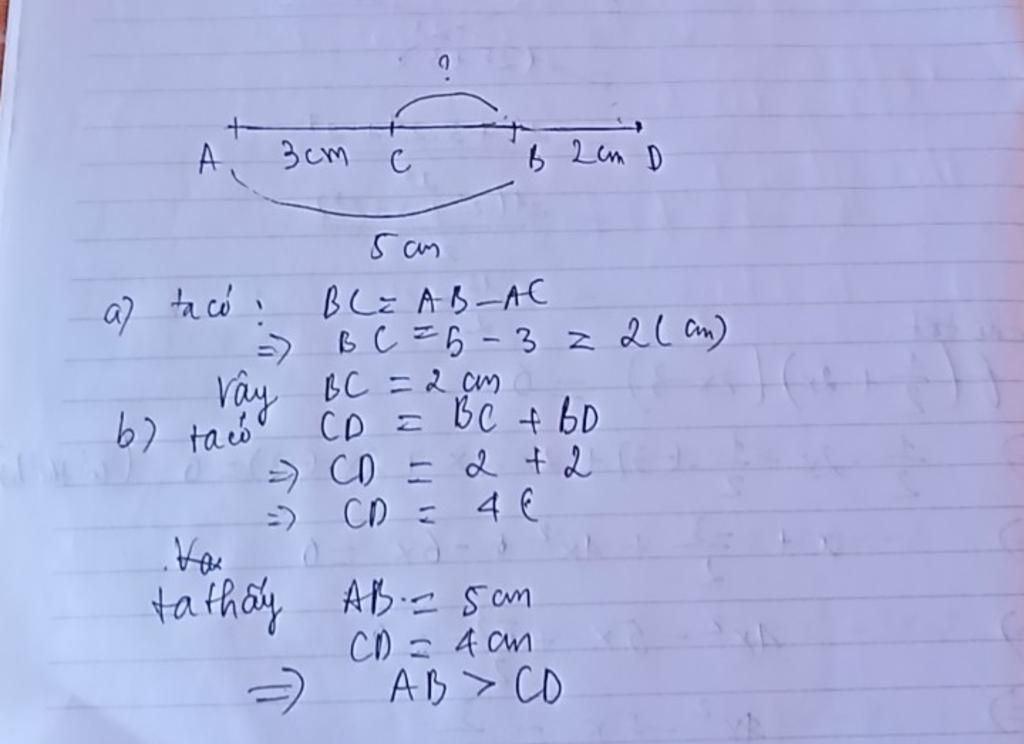 ?
A 3cm C B 2cm D
5 cm
a) ta có : BC = AB - AC
=> BC = 5 - 3 = 2 (cm)
Vây BC = 2 cm
b) ta có CD = BC + BD
=> CD = 2 + 2
=> CD = 4
ta thấy AB = 5 cm
CD = 4 cm
=> AB > CD